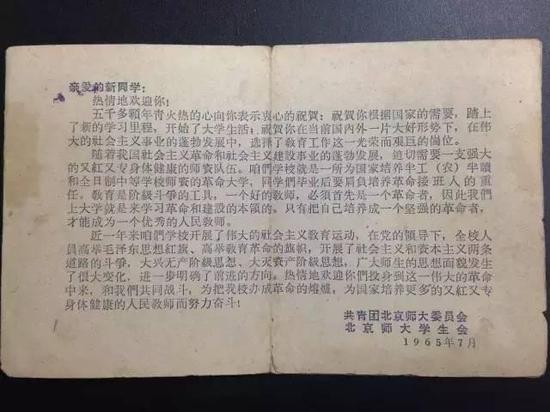 亲爱的新同学：
热情地欢迎你！
五千多顆年青火热的心向你表示衷心的祝賀：祝賀你根据国家的需要，踏上
了新的学习里程，开始了大学生活；祝賀你在当前国内外一片大好形势下，在伟
大的社会主义事业的蓬勃发展中，选择了教育工作这一光荣而艰巨的崗位。
随着我国社会主义革命和社会主义建設事业的蓬勃发展，迫切需要一支强大
的又紅又专身体健康的师資队伍。咱們学校就是一所为国家培养半工（农）半讀
和全日制中等学校师資的革命大学，同学們毕业后要肩負培养革命接班人的重
任。教育是阶級斗爭的工具，一个好的教师，必须首先是一个革命者，因此我們
上大学就是来学习革命和建設的本領的。只有把自己培养成一个坚强的革命者，
才能成为一个优秀的人民教师。
近一年来咱們学校开展了伟大的社会主义教育运动，在党的領导下，全校人
員高举毛泽东思想紅旗、高举教育革命的旗帜，开展了社会主义和資本主义两条
道路的斗爭，大兴无产阶級思想、大灭資产阶級思想，广大师生的思想面貌发生
了很大变化，进一步明确了前进的方向。热情地欢迎你們投身到这一伟大的革命
中来，和我們共同战斗，为把我校办成革命的熔爐，为国家培养更多的又紅又专
身体健康的人民教师而努力奋斗！
共青团北京师大委員会
北京师大学生会
1965年7月